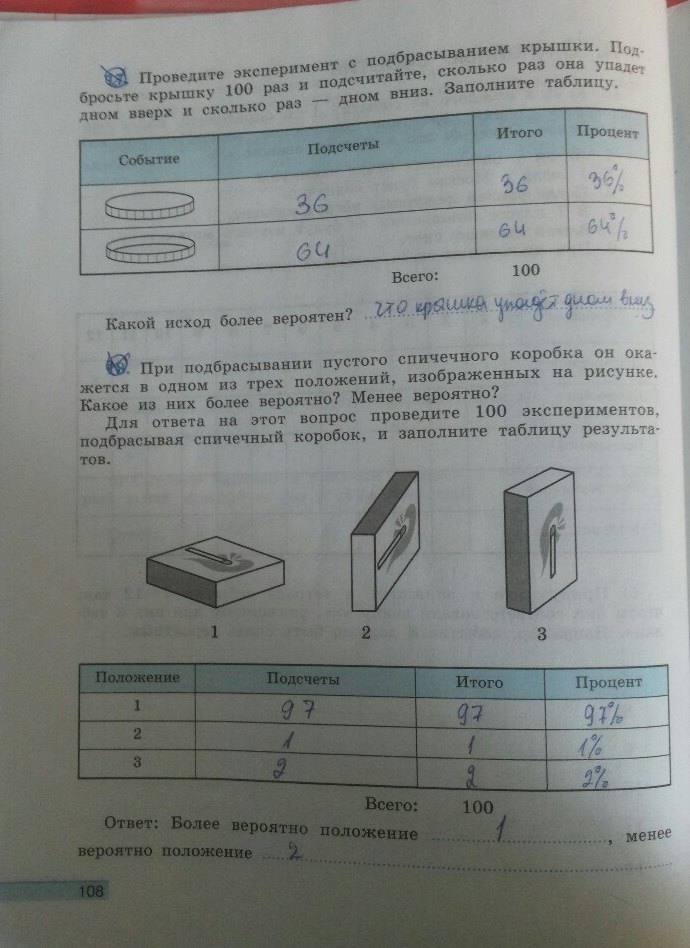 Проведите эксперимент с подбрасыванием крышки. Под-
бросьте крышку 100 раз и подсчитайте, сколько раз она упадет
дном вверх и сколько раз — дном вниз. Заполните таблицу.
Событие Подсчеты Итого Процент
36 36 36%
64 64 64%
Всего: 100
Какой исход более вероятен? что крышка упадёт дном вниз
При подбрасывании пустого спичечного коробка он ока-
жется в одном из трех положений, изображенных на рисунке.
Какое из них более вероятно? Менее вероятно?
Для ответа на этот вопрос проведите 100 экспериментов,
подбрасывая спичечный коробок, и заполните таблицу результа-
тов.
1 2 3
Положение Подсчеты Итого Процент
1 97 97 97%
2 1 1 1%
3 2 2 2%
Всего: 100
Ответ: Более вероятно положение 1, менее
вероятно положение 2
108